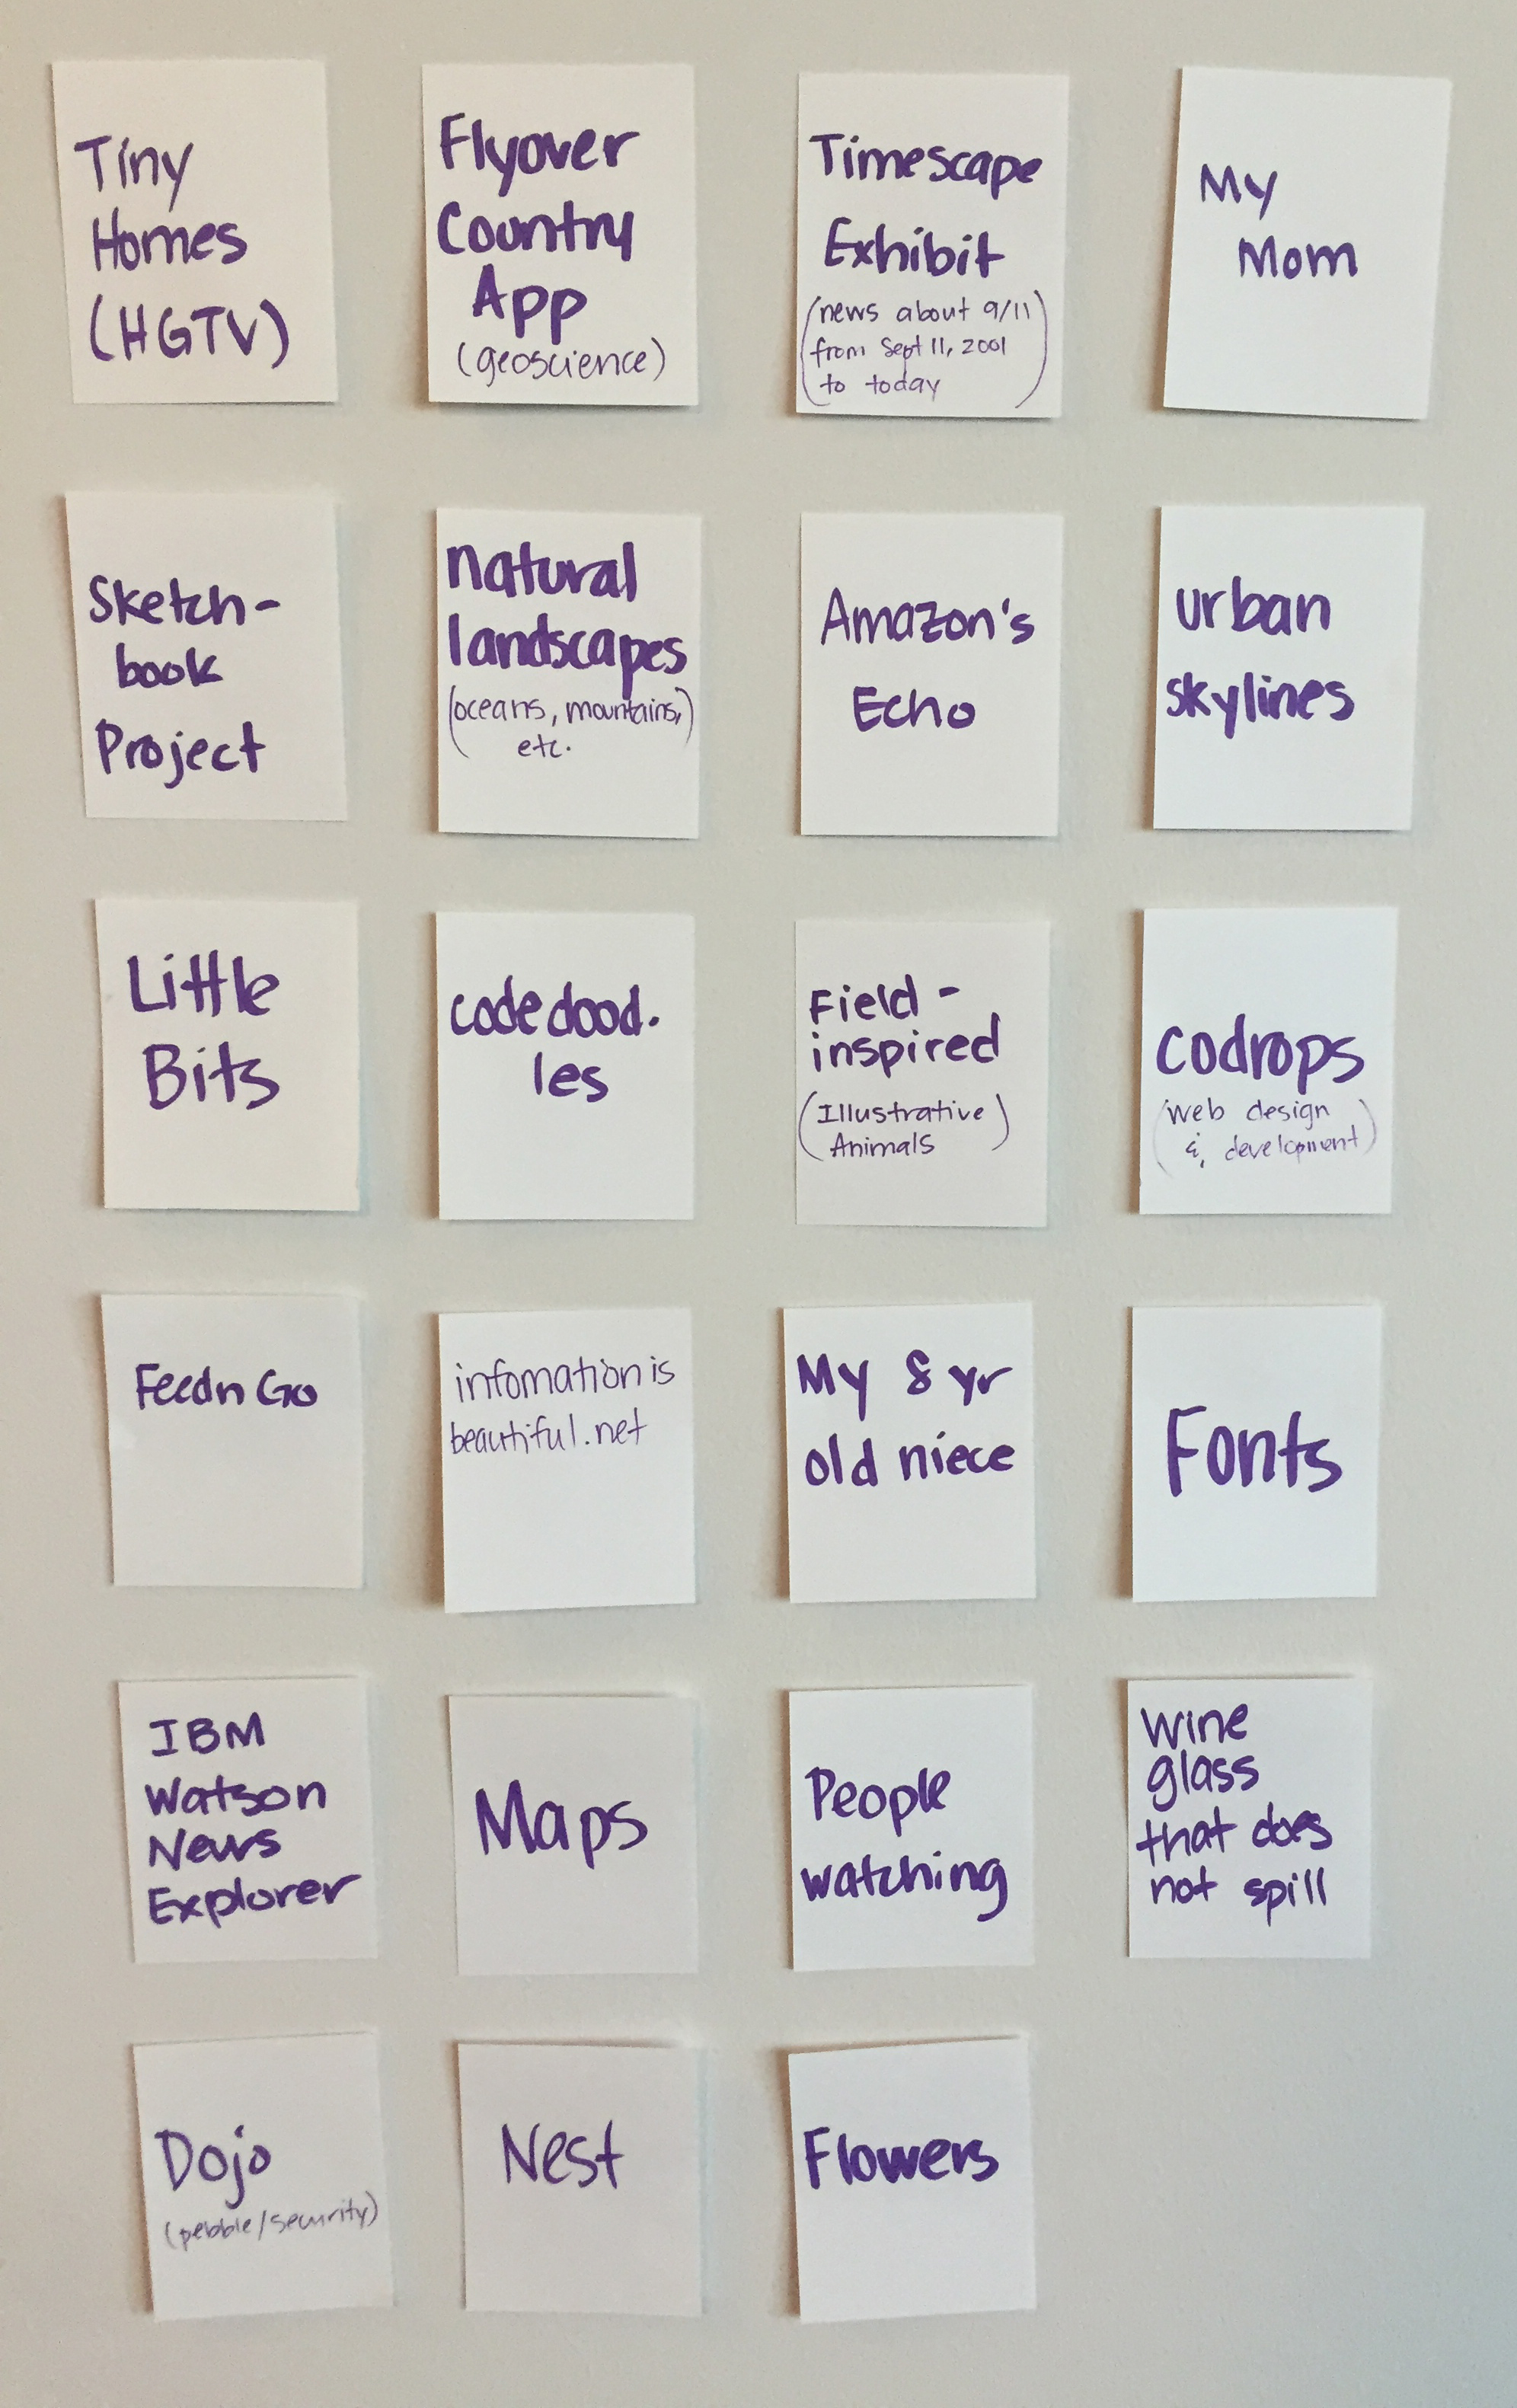 Tiny
Homes
(HGTV)
Flyover
Country
App
(geoscience)
Timescape
Exhibit
(news about 9/11
from Sept 11, 2001
to today)
My
Mom
Sketch-
book
Project
natural
landscapes
(oceans, mountains,)
etc.
Amazon's
Echo
urban
skylines
Little
Bits
codedood.
les
Field-
inspired
(Illustrative
Animals)
codrops
(web design
& development)
Feedn Go
infomation is
beautiful.net
My 8 yr
old niece
Fonts
IBM
Watson
News
Explorer
Maps
People
watching
Wine
glass
that does
not spill
Dojo
(pebble/security)
Nest
Flowers